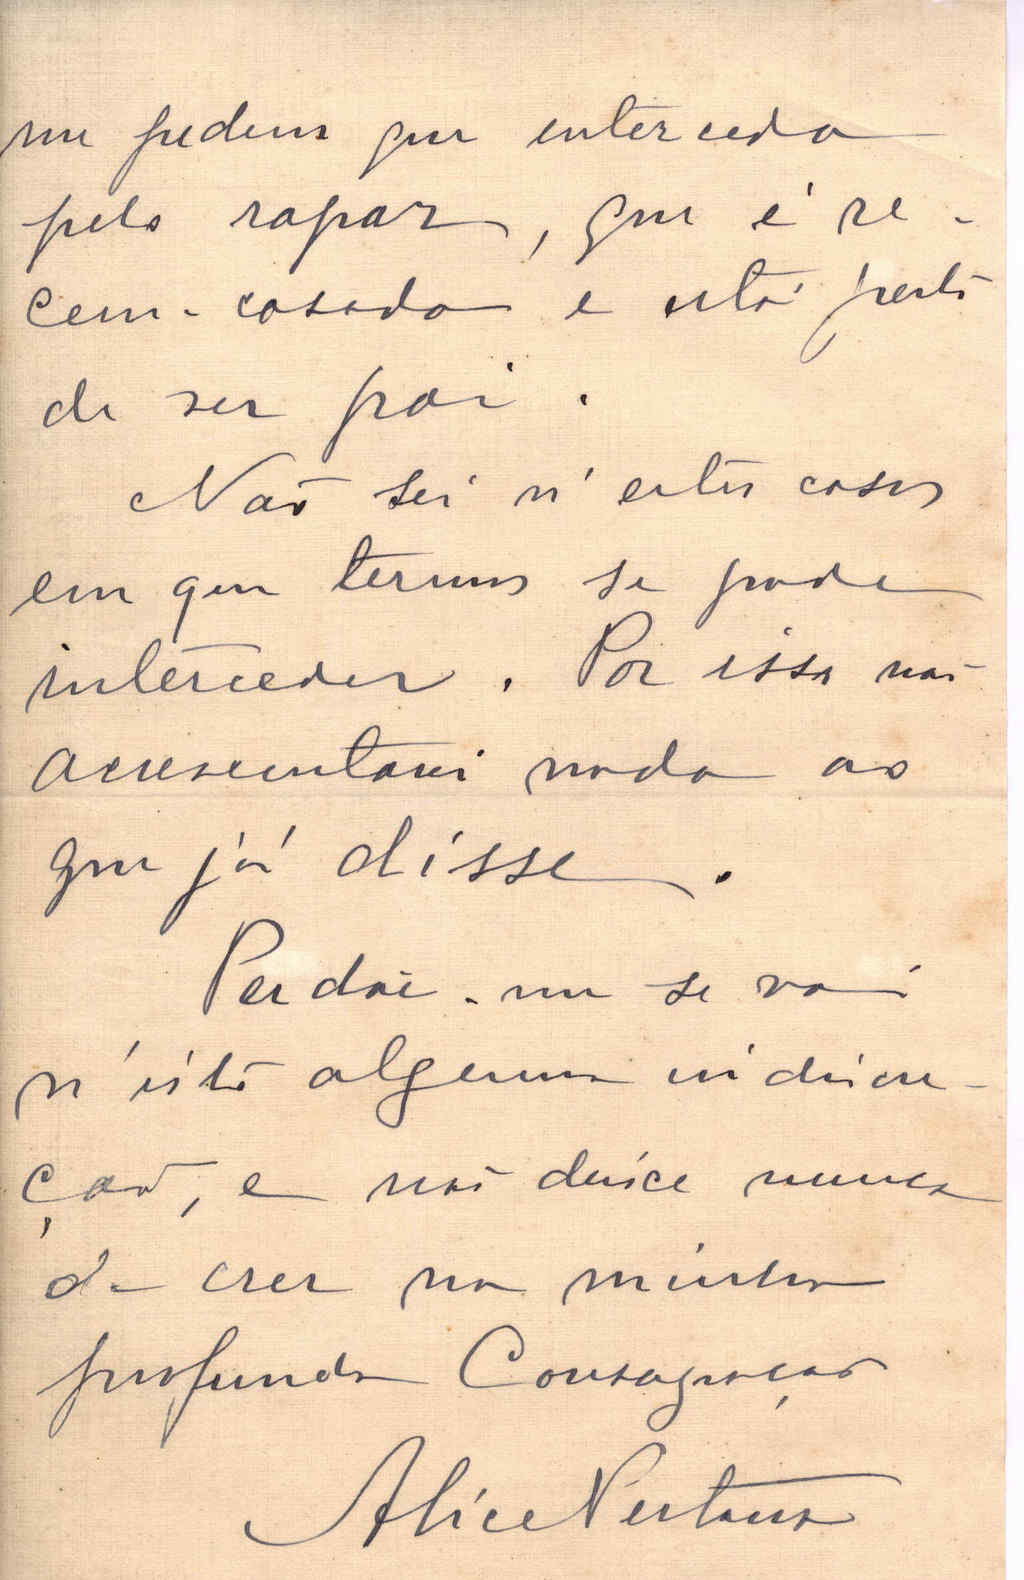 me pedem que interceda
pelo rapaz, que é re-
cem-casado e está perto
de ser pai.
Não sei n'estes casos
em que termos se pode
interceder. Por isso não
acrescentarei nada ao
que já disse.
Perdoe-me se vai
n'isto alguma indiscre-
ção, e não deixe nunca
de crer na minha
profunda Consagração
Alice Pestana